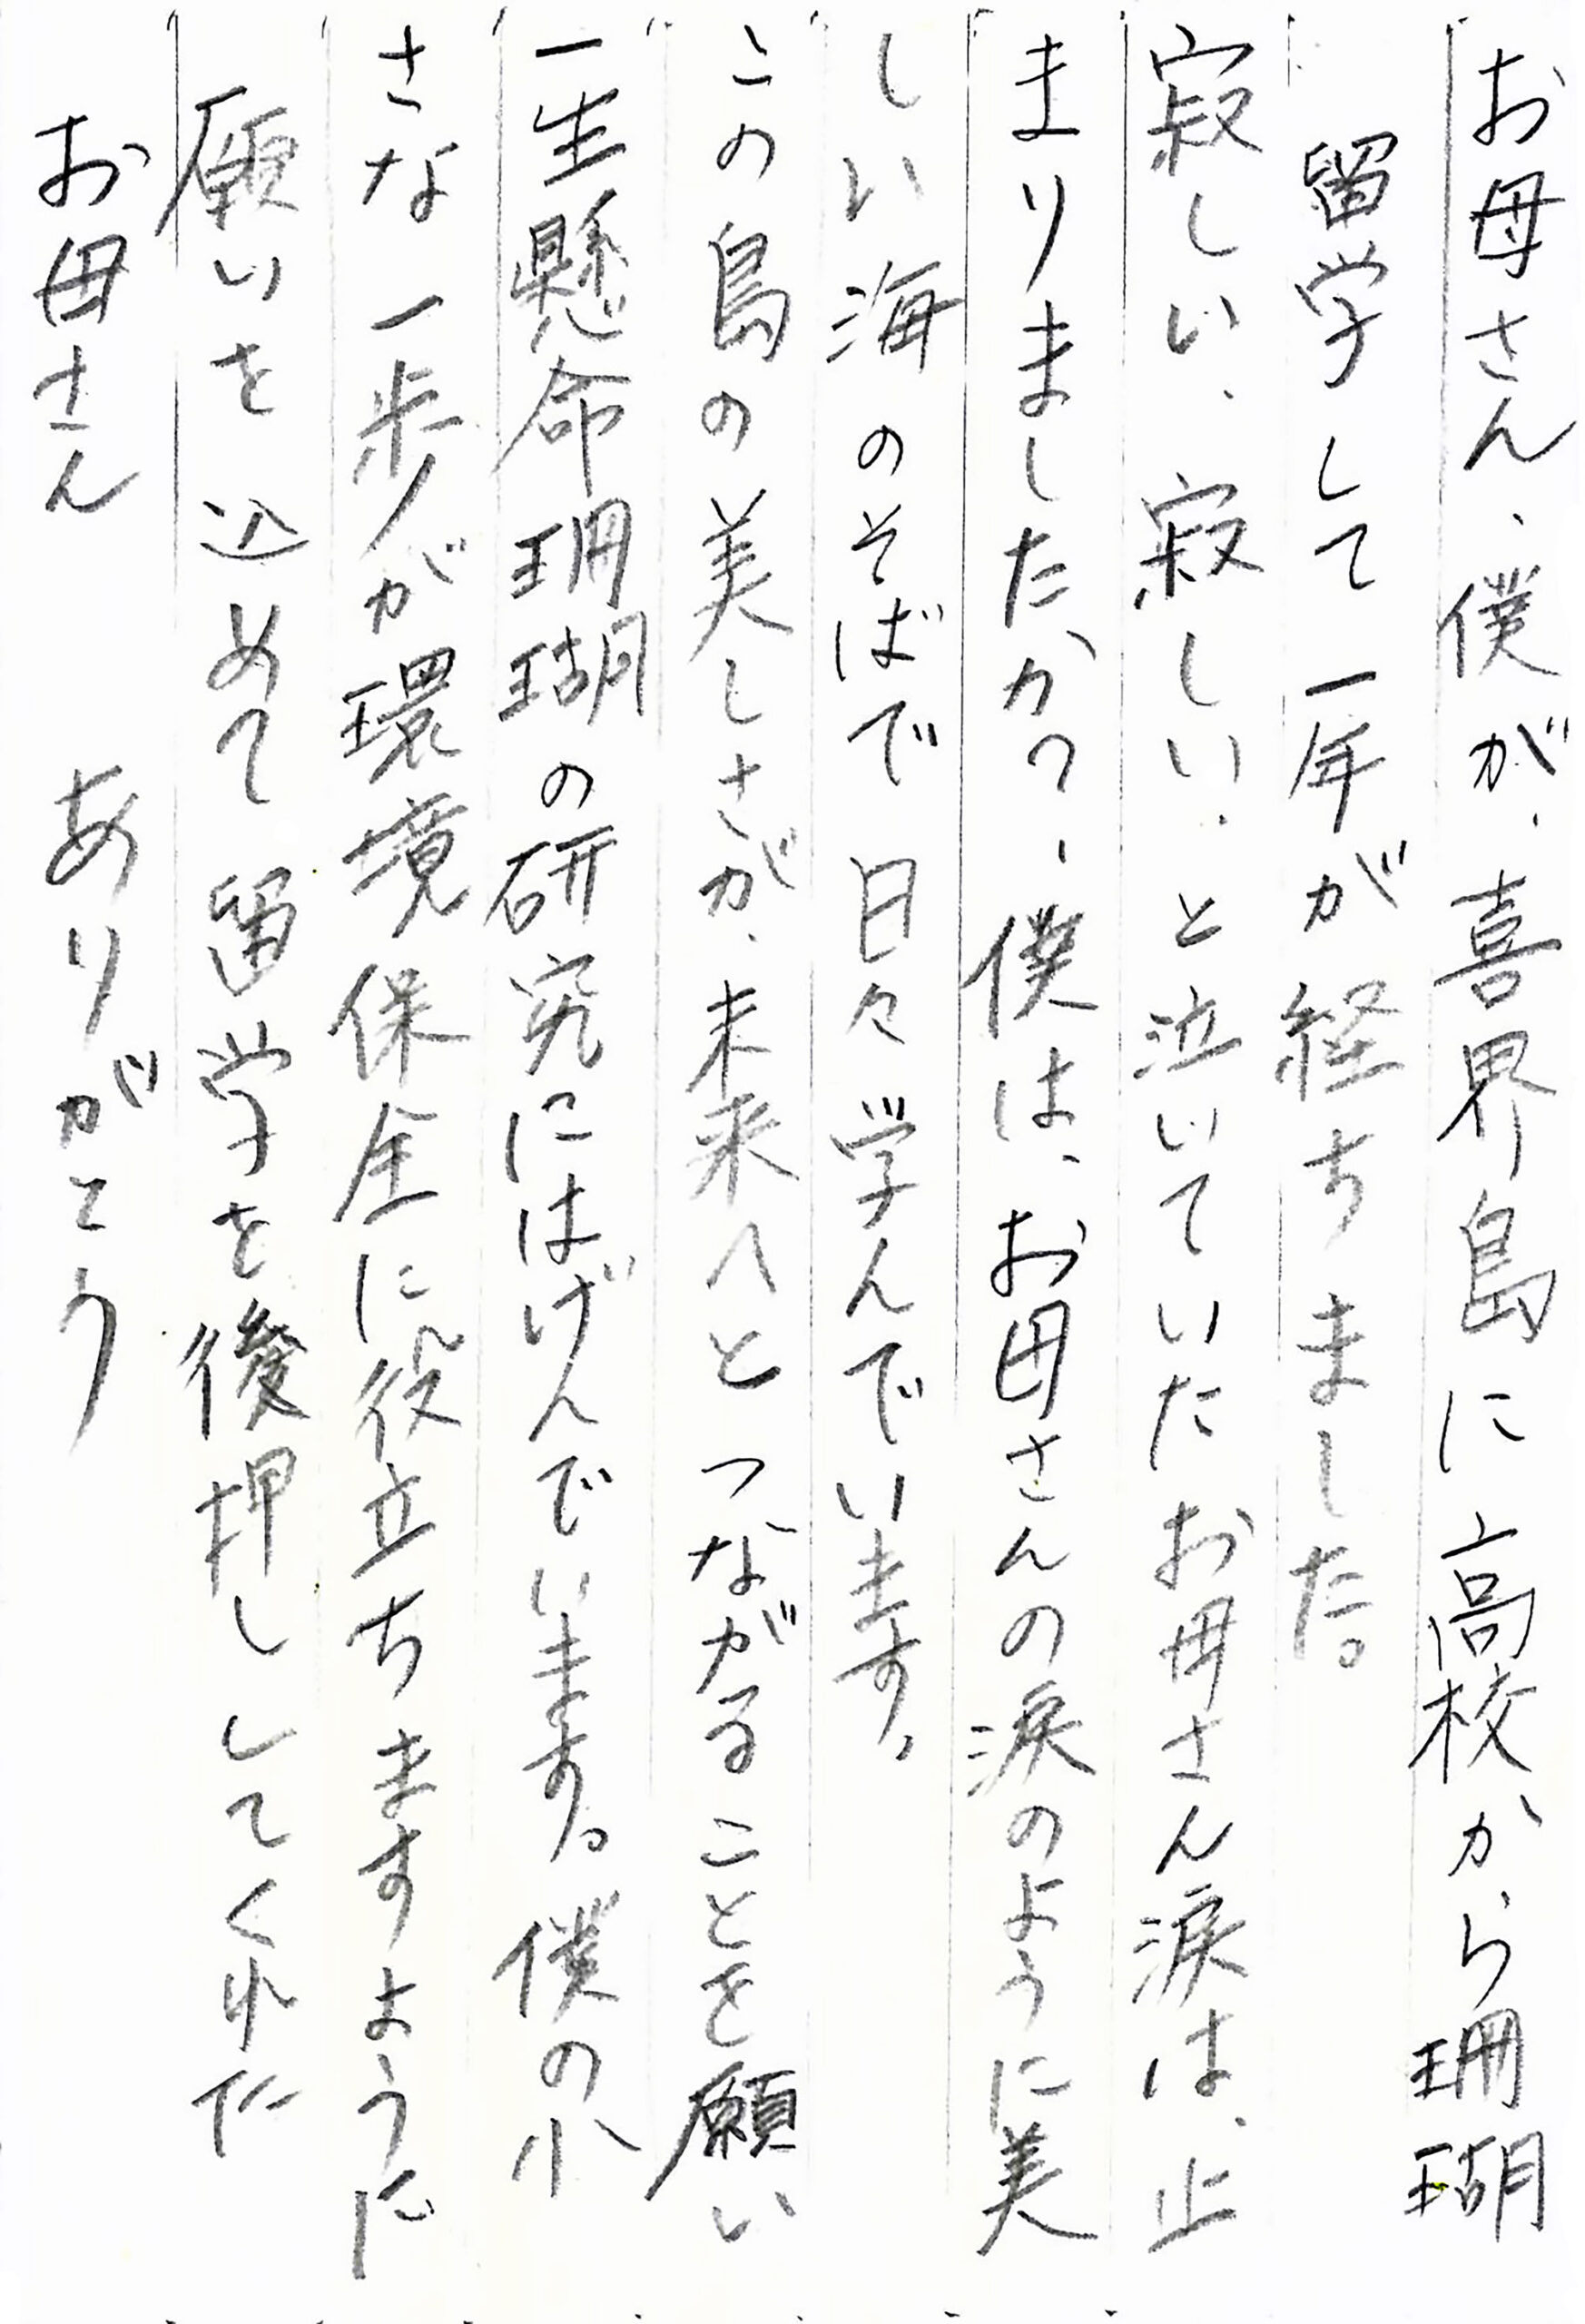 お母さん、僕が、喜界島に高校から珊瑚
留学して一年が経ちました。
寂しい、寂しい、と泣いていたお母さん涙は、止
まりましたか？、僕は、お母さんの涙のように美
しい海のそばで日々学んでいます。
この島の美しさが、未来へとつながることを願い
一生懸命珊瑚の研究にはげんでいます。僕の小
さな一歩が環境保全に役立ちますように
願いを込めて留学を後押ししてくれた
お母さん ありがとう